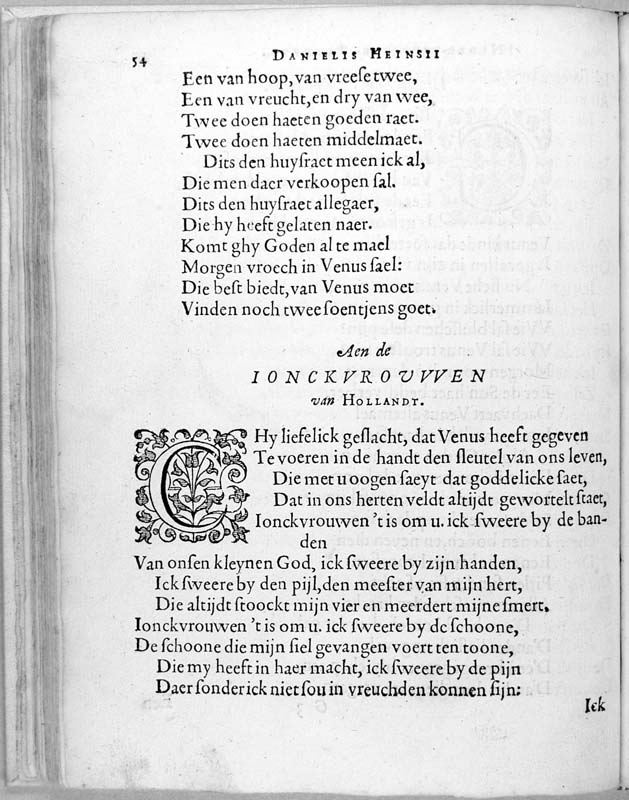 54 DANIELIS HEINSII
Een van hoop, van vreese twee,
Een van vreucht, en dry van wee,
Twee doen haeten goeden raet.
Twee doen haeten middelmaet.
Dits den huysraet meen ick al,
Die men daer verkoopen sal.
Dits den huysraet allegaer,
Die hy heeft gelaten naer.
Komt ghy Goden al te mael
Morgen vroech in Venus sael:
Die best biedt, van Venus moet
Vinden noch twee soentjens goet.
Aen de
IONCKVROUVVEN
van HOLLANDT.
GHy liefelick geslacht, dat Venus heeft gegeven
Te voeren in de handt den sleutel van ons leven,
Die met u oogen saeyt dat goddelicke saet,
Dat in ons herten veldt altijdt gewortelt staet,
Ionckvrouwen 't is om u. ick sweere by de ban-
den
Van onsen kleynen God, ick sweere by zijn handen,
Ick sweere by den pijl, den meester van mijn hert,
Die altijdt stoockt mijn vier en meerdert mijne smert.
Ionckvrouwen 't is om u. ick sweere by de schoone,
De schoone die mijn siel gevangen voert ten toone,
Die my heeft in haer macht, ick sweere by de pijn
Daer sonder ick niet sou in vreuchden konnen sijn:
Ick